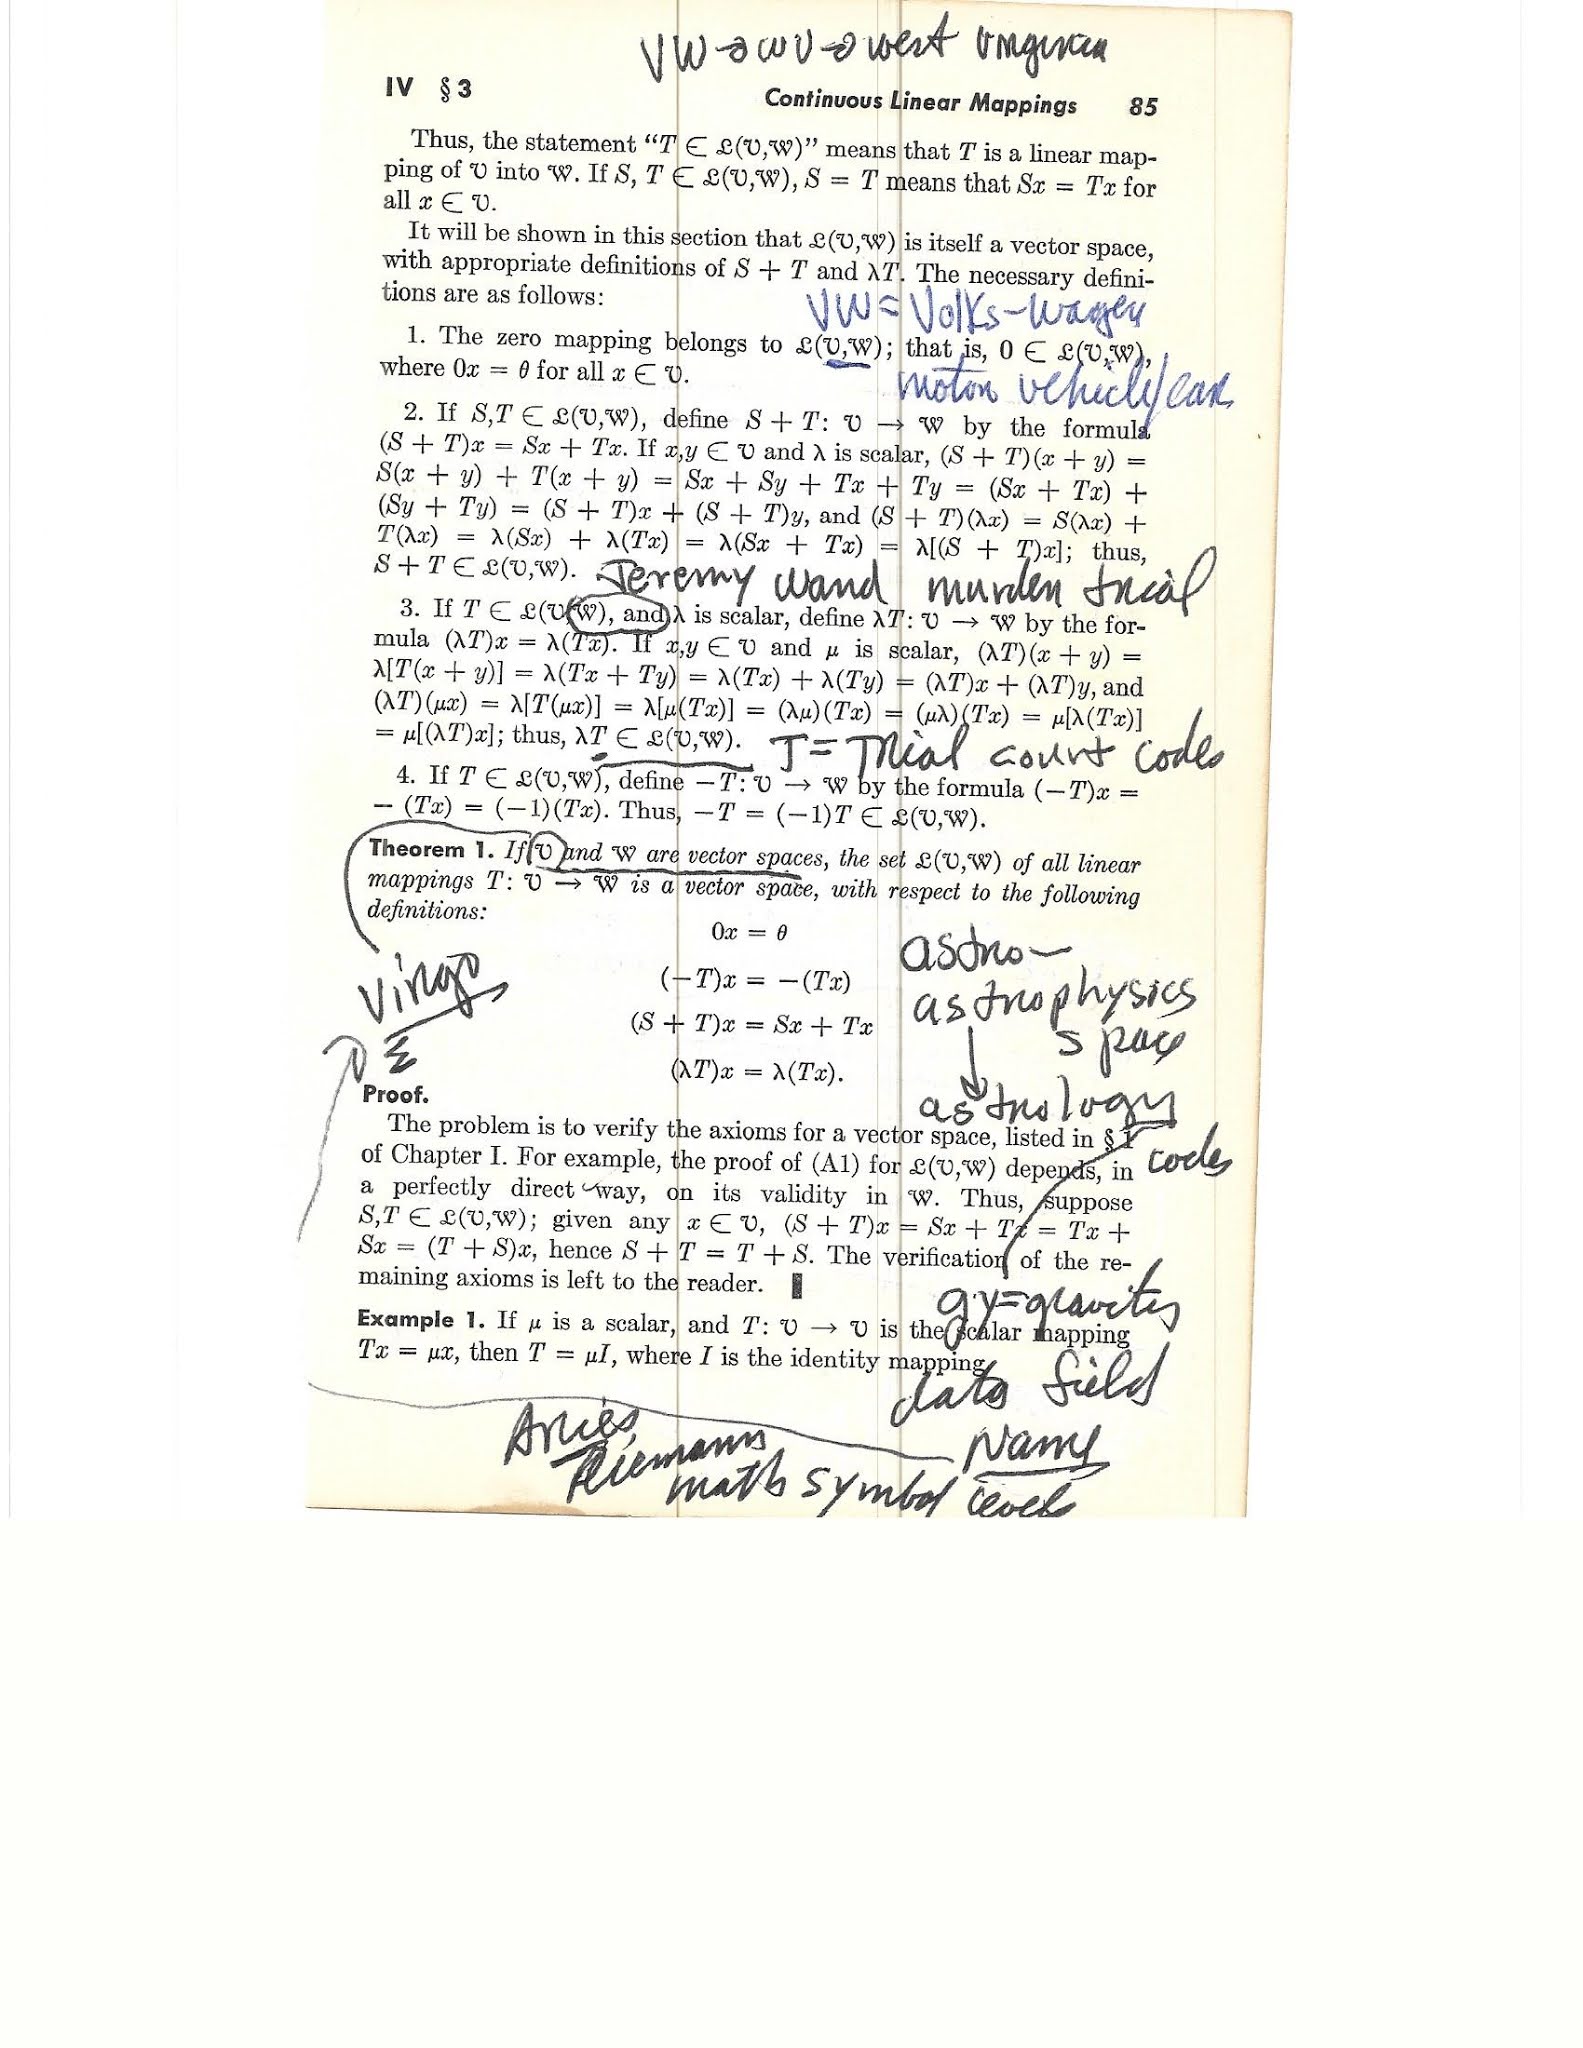 VW → WV → west virginia
IV § 3
Continuous Linear Mappings 85
Thus, the statement “T ∈ ℒ(𝒱,𝒲)” means that T is a linear map-
ping of 𝒱 into 𝒲. If S, T ∈ ℒ(𝒱,𝒲), S = T means that Sx = Tx for
all x ∈ 𝒱.
It will be shown in this section that ℒ(𝒱,𝒲) is itself a vector space,
with appropriate definitions of S + T and λT. The necessary defini-
tions are as follows:
VW = Volks-wagen
1. The zero mapping belongs to ℒ(𝒱,𝒲); that is, 0 ∈ ℒ(𝒱,𝒲),
where 0x = θ for all x ∈ 𝒱.
motor vehicle/car
2. If S,T ∈ ℒ(𝒱,𝒲), define S + T: 𝒱 → 𝒲 by the formula
(S + T)x = Sx + Tx. If x,y ∈ 𝒱 and λ is scalar, (S + T)(x + y) =
S(x + y) + T(x + y) = Sx + Sy + Tx + Ty = (Sx + Tx) +
(Sy + Ty) = (S + T)x + (S + T)y, and (S + T)(λx) = S(λx) +
T(λx) = λ(Sx) + λ(Tx) = λ(Sx + Tx) = λ[(S + T)x]; thus,
S + T ∈ ℒ(𝒱,𝒲).
Jeremy wand murder trial
3. If T ∈ ℒ(𝒱,𝒲), and λ is scalar, define λT: 𝒱 → 𝒲 by the for-
mula (λT)x = λ(Tx). If x,y ∈ 𝒱 and μ is scalar, (λT)(x + y) =
λ[T(x + y)] = λ(Tx + Ty) = λ(Tx) + λ(Ty) = (λT)x + (λT)y, and
(λT)(μx) = λ[T(μx)] = λ[μ(Tx)] = (λμ)(Tx) = (μλ)(Tx) = μ[λ(Tx)]
= μ[(λT)x]; thus, λT ∈ ℒ(𝒱,𝒲).
T = Trial court codes
4. If T ∈ ℒ(𝒱,𝒲), define −T: 𝒱 → 𝒲 by the formula (−T)x =
− (Tx) = (−1)(Tx). Thus, −T = (−1)T ∈ ℒ(𝒱,𝒲).
Theorem 1. If 𝒱 and 𝒲 are vector spaces, the set ℒ(𝒱,𝒲) of all linear
mappings T: 𝒱 → 𝒲 is a vector space, with respect to the following
definitions:
0x = θ
(−T)x = −(Tx)
(S + T)x = Sx + Tx
(λT)x = λ(Tx).
Virgo
astro-
astrophysics
space
astrology
codes
Proof.
The problem is to verify the axioms for a vector space, listed in § 1
of Chapter I. For example, the proof of (A1) for ℒ(𝒱,𝒲) depends, in
a perfectly direct way, on its validity in 𝒲. Thus, suppose
S,T ∈ ℒ(𝒱,𝒲); given any x ∈ 𝒱, (S + T)x = Sx + Tx = Tx +
Sx = (T + S)x, hence S + T = T + S. The verification of the re-
maining axioms is left to the reader.
gy=gravity
Example 1. If μ is a scalar, and T: 𝒱 → 𝒱 is the scalar mapping
Tx = μx, then T = μI, where I is the identity mapping.
data field
Name
Aries,
Riemann
math symbol levels